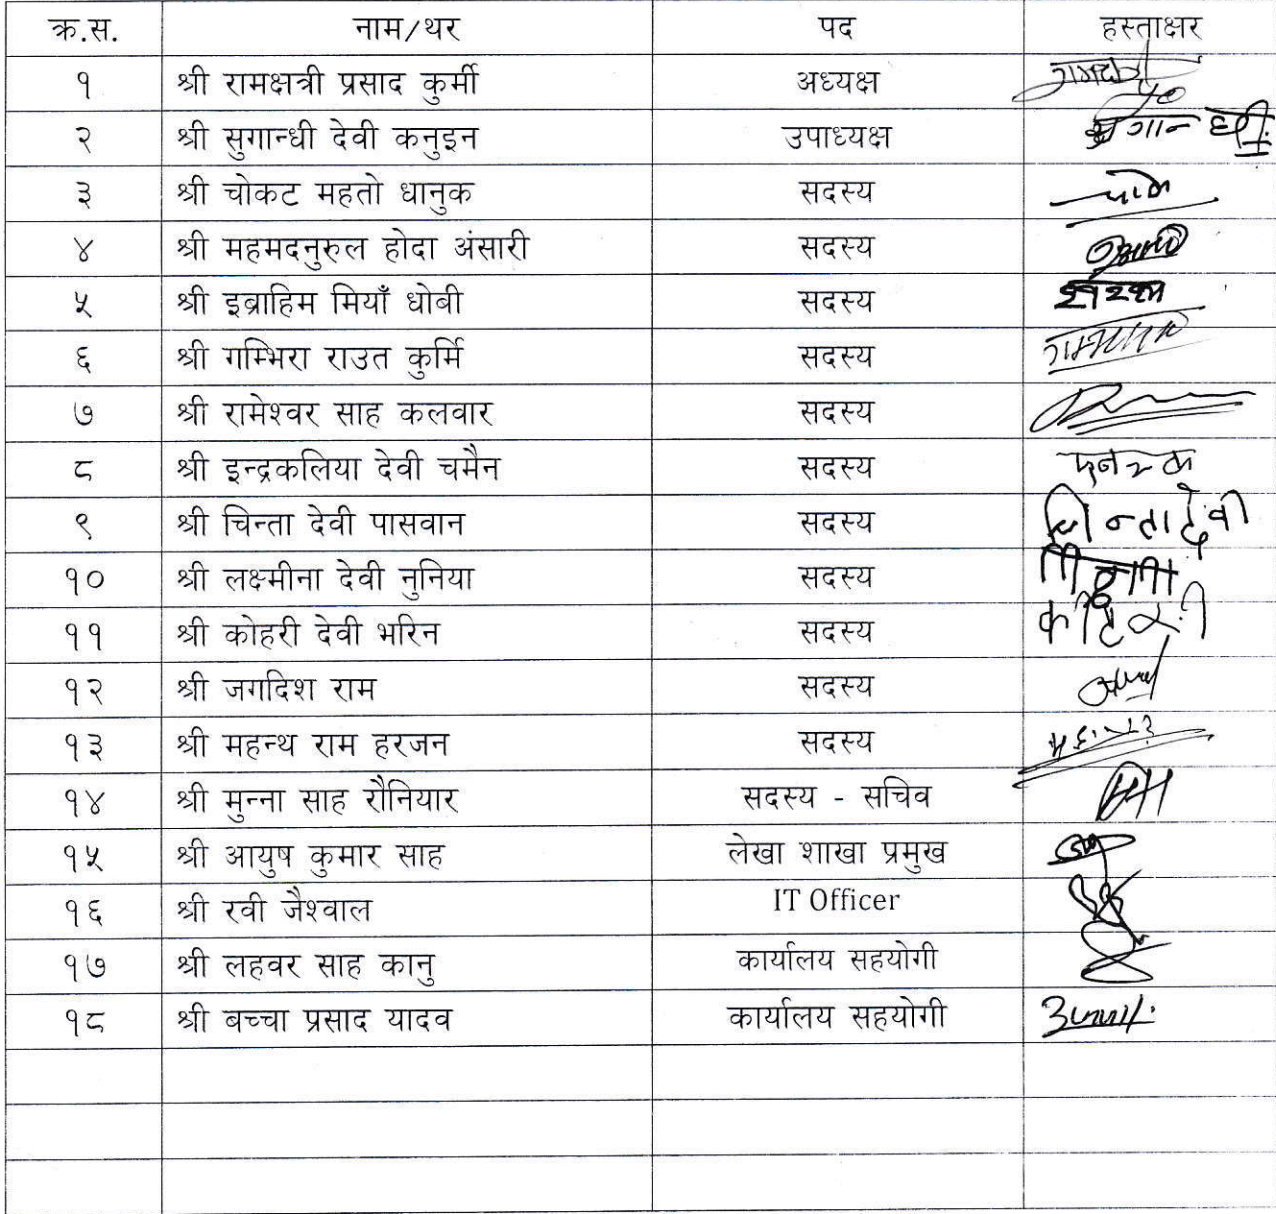 क्र.स. नाम/थर पद हस्ताक्षर
१ श्री रामक्षत्री प्रसाद कुर्मी अध्यक्ष
२ श्री सुगान्धी देवी कनुइन उपाध्यक्ष
३ श्री चोकट महतो धानुक सदस्य
४ श्री महमदनुरुल होदा अंसारी सदस्य
५ श्री इब्राहिम मियाँ धोबी सदस्य
६ श्री गम्भिरा राउत कुर्मि सदस्य
७ श्री रामेश्वर साह कलवार सदस्य
८ श्री इन्द्रकलिया देवी चमैन सदस्य
९ श्री चिन्ता देवी पासवान सदस्य चिन्तादेवी
१० श्री लक्ष्मीना देवी नुनिया सदस्य
११ श्री कोहरी देवी भरिन सदस्य
१२ श्री जगदिश राम सदस्य
१३ श्री महन्थ राम हरजन सदस्य
१४ श्री मुन्ना साह रौनियार सदस्य - सचिव
१५ श्री आयुष कुमार साह लेखा शाखा प्रमुख
१६ श्री रवी जैश्वाल IT Officer
१७ श्री लहवर साह कानु कार्यालय सहयोगी
१८ श्री बच्चा प्रसाद यादव कार्यालय सहयोगी